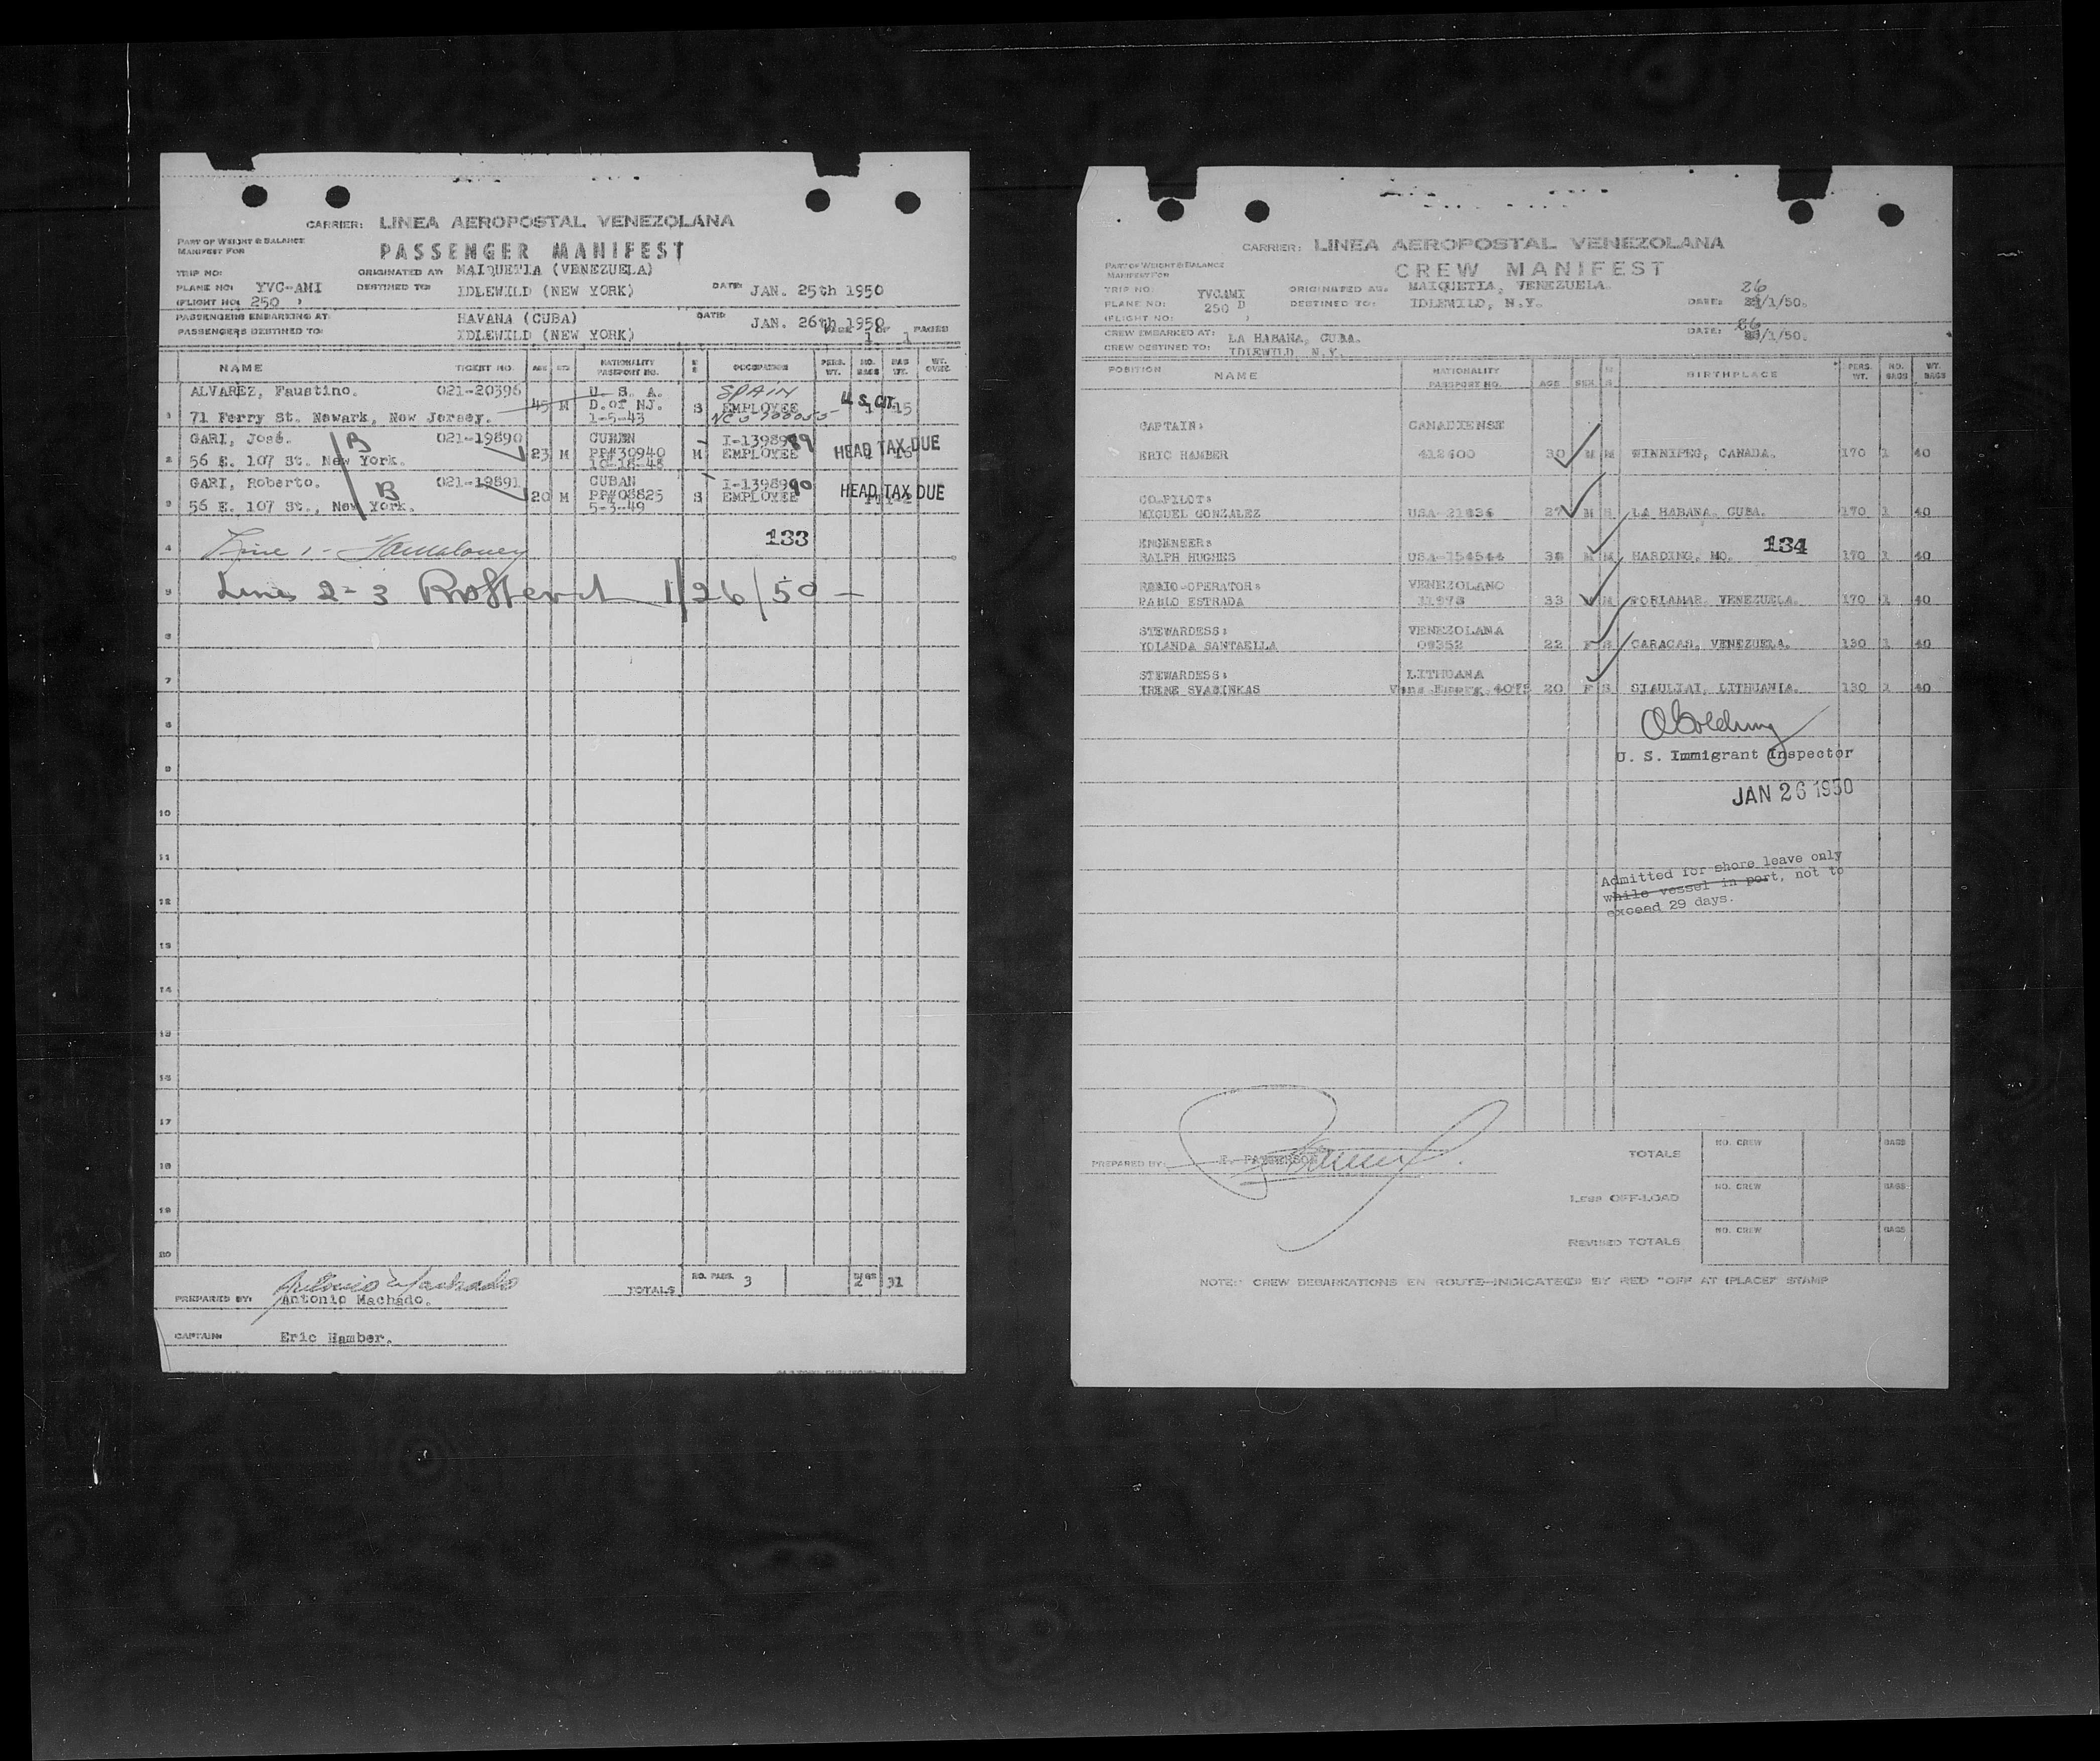 CARRIER: LINEA AEROPOSTAL VENEZOLANA
PART OF WEIGHT & BALANCE
MANIFEST FOR
PASSENGER MANIFEST
TRIP NO:
ORIGINATED AT: MAIQUETIA (VENEZUELA)
PLANE NO: YVC-AMI
DESTINED TO: IDLEWILD (NEW YORK)
DATE: JAN. 25th 1950
(FLIGHT NO: 250 )
PASSENGERS EMBARKING AT: HAVANA (CUBA)
DATE: JAN. 26th 1950
PASSENGERS DESTINED TO: IDLEWILD (NEW YORK)
PAGE 1 OF 1 PAGES
NAME TICKET NO. AGE SEX NATIONALITY PASSPORT NO. M S OCCUPATION PERS. WT. NO. BAGS BAG WT. WT. OVRC.
ALVAREZ, Faustino. 021-20396 U. S. A. SPAIN
1 71 Ferry St. Newark, New Jersey. 45 M D. of NJ. S EMPLOYEE U.S. CIT. 15
1-5-43
GARI, José. B 021-19890 CUBAN I-1398989
2 56 E. 107 St. New York. 23 M PP#30940 M EMPLOYEE HEAD TAX DUE
10-18-48
GARI, Roberto. B 021-19891 CUBAN I-1398990
3 56 E. 107 St., New York. 20 M PP#08825 S EMPLOYEE HEAD TAX DUE
5-3-49
133
4 Line 1 -
5 Lines 2-3 1/26/50 -
6
7
8
9
10
11
12
13
14
15
16
17
18
19
20
TOTALS NO. PASS. 3 BAGS 2 31
Antonio Machado
PREPARED BY: Antonio Machado.
CAPTAIN: Eric Hamber.
CARRIER: LINEA AEROPOSTAL VENEZOLANA
PART OF WEIGHT & BALANCE
MANIFEST FOR
CREW MANIFEST
TRIP NO: YVCAMI
ORIGINATED AT: MAIQUETIA, VENEZUELA.
26
PLANE NO: 250 D
DESTINED TO: IDLEWILD, N.Y.
DATE: /1/50.
(FLIGHT NO: )
CREW EMBARKED AT: LA HABANA, CUBA.
DATE: 26 /1/50.
CREW DESTINED TO: IDLEWILD N.Y.
POSITION NAME NATIONALITY PASSPORT NO. AGE SEX M S BIRTHPLACE PERS. WT. NO. BAGS WT. BAGS
CAPTAIN: CANADIENSE
ERIC HAMBER 412400 30 M M WINNIPEG, CANADA. 170 1 40
CO-PILOT:
MIGUEL GONZALEZ USA-21836 27 M S LA HABANA, CUBA. 170 1 40
ENGENEER: 134
RALPH HUGHES USA-154544 38 M M HARDING, MO. 170 1 40
RADIO-OPERATOR: VENEZOLANO
PABLO ESTRADA 33 M PORLAMAR, VENEZUELA. 170 1 40
STEWARDESS: VENEZOLANA
YOLANDA SANTAELLA 09352 22 F S CARACAS, VENEZUELA. 130 1 40
STEWARDESS: LITHUANA
IRENE SVADINKAS 20 F S SIAULIAI, LITHUANIA. 130 1 40
U. S. Immigrant Inspector
JAN 26 1950
Admitted for shore leave only
while vessel in port, not to
exceed 29 days.
PREPARED BY:
TOTALS NO. CREW BAGS
LESS OFF-LOAD NO. CREW BAGS
REVISED TOTALS NO. CREW BAGS
NOTE: CREW DEBARKATIONS EN ROUTE-INDICATED BY RED "OFF AT (PLACE)" STAMP